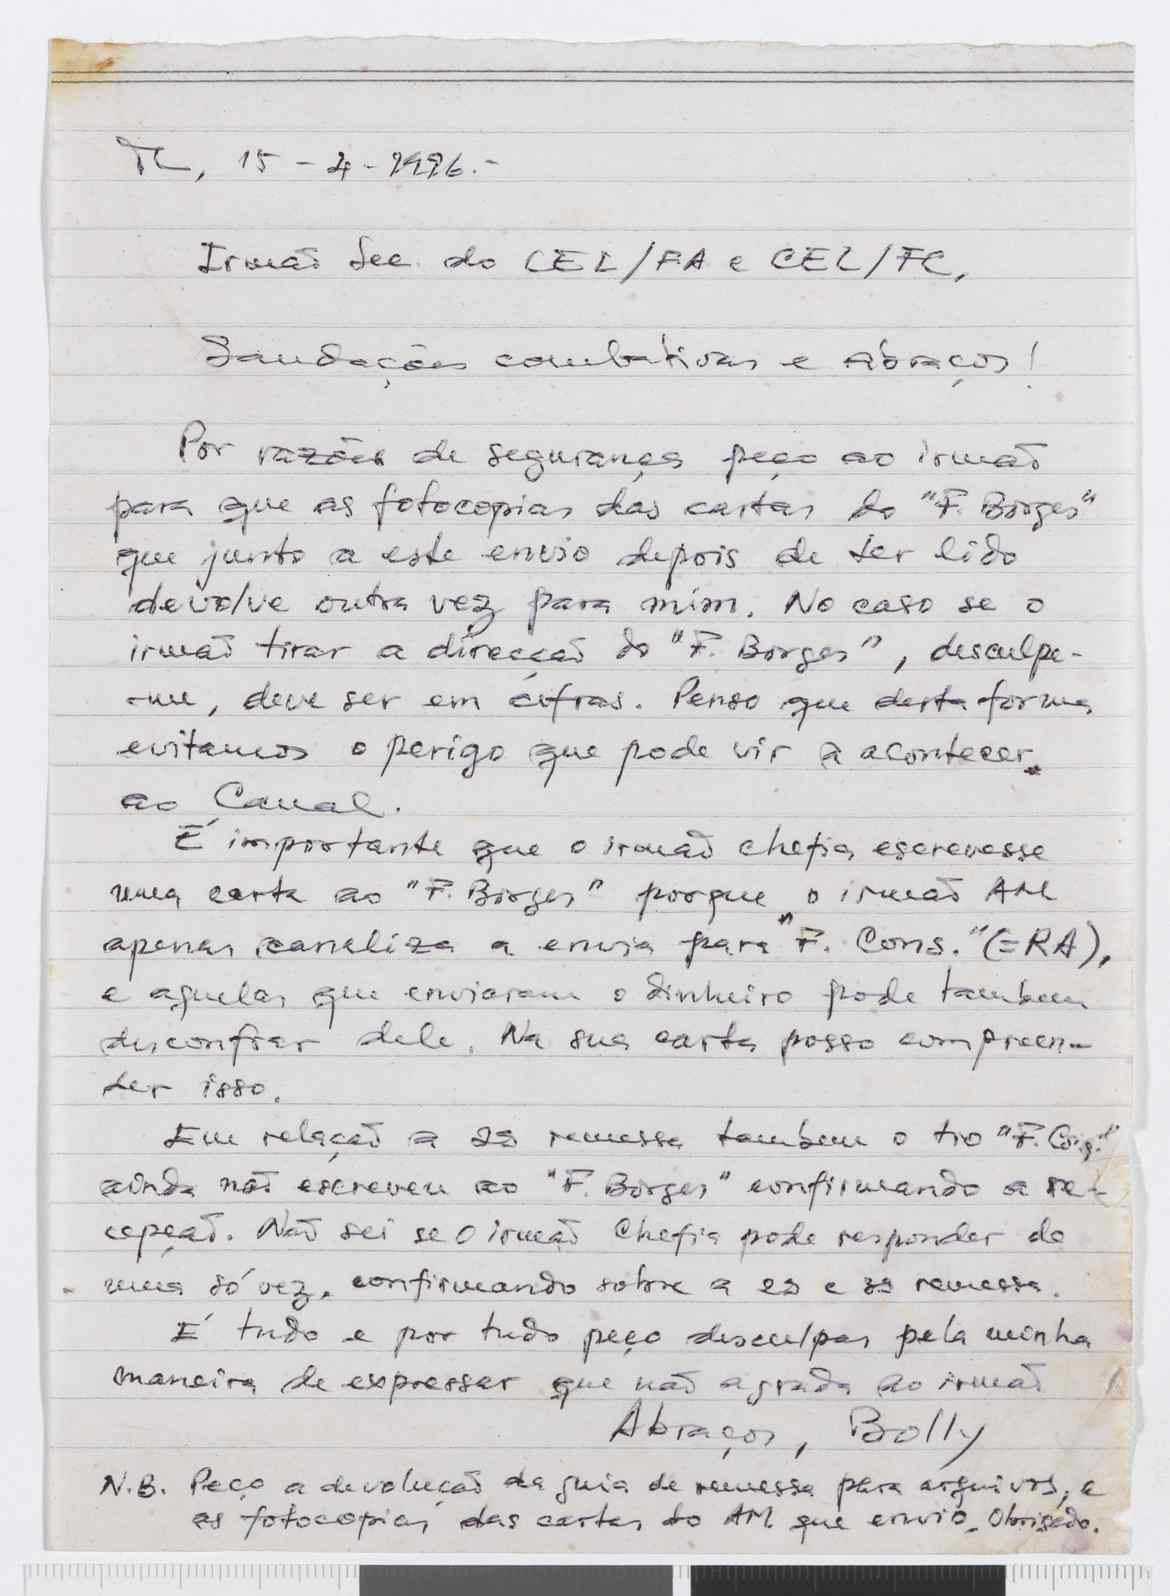 TL, 15-4-1996.-
Irmão Sec. do CEL/FA e CEL/FC,
Saudações combativas e abraços!
Por razões de segurança peço ao irmão
para que as fotocopias das cartas do "F. Borges"
que junto a este envio depois de ter lido
devolve outra vez para mim. No caso se o
irmão tirar a direcção do "F. Borges", desculpe-
-me, deve ser em cifras. Penso que desta forma
evitamos o perigo que pode vir a acontecer
ao Canal.
É importante que o irmão chefia escrevesse
uma carta ao "F. Borges" porque o irmão AM
apenas canaliza a envia para "F. Cons." (=RA),
e aquelas que enviaram o dinheiro pode tambem
desconfiar dele. Na sua carta posso compreen-
der isso.
Em relação a 2ª remessa tambem o tio "F.
ainda não escreveu ao "F. Borges" confirmando a re-
cepção. Não sei se o irmão Chefia pode responder de
uma só vez, confirmando sobre a 2ª e 3ª remessa.
É tudo e por tudo peço desculpas pela minha
maneira de expressar que não agrada ao irmão
Abraços, Bolly
N.B. Peço a devolução da guia de remessa para arquivos, e
as fotocopias das cartas do AM que envio. Obrigado.